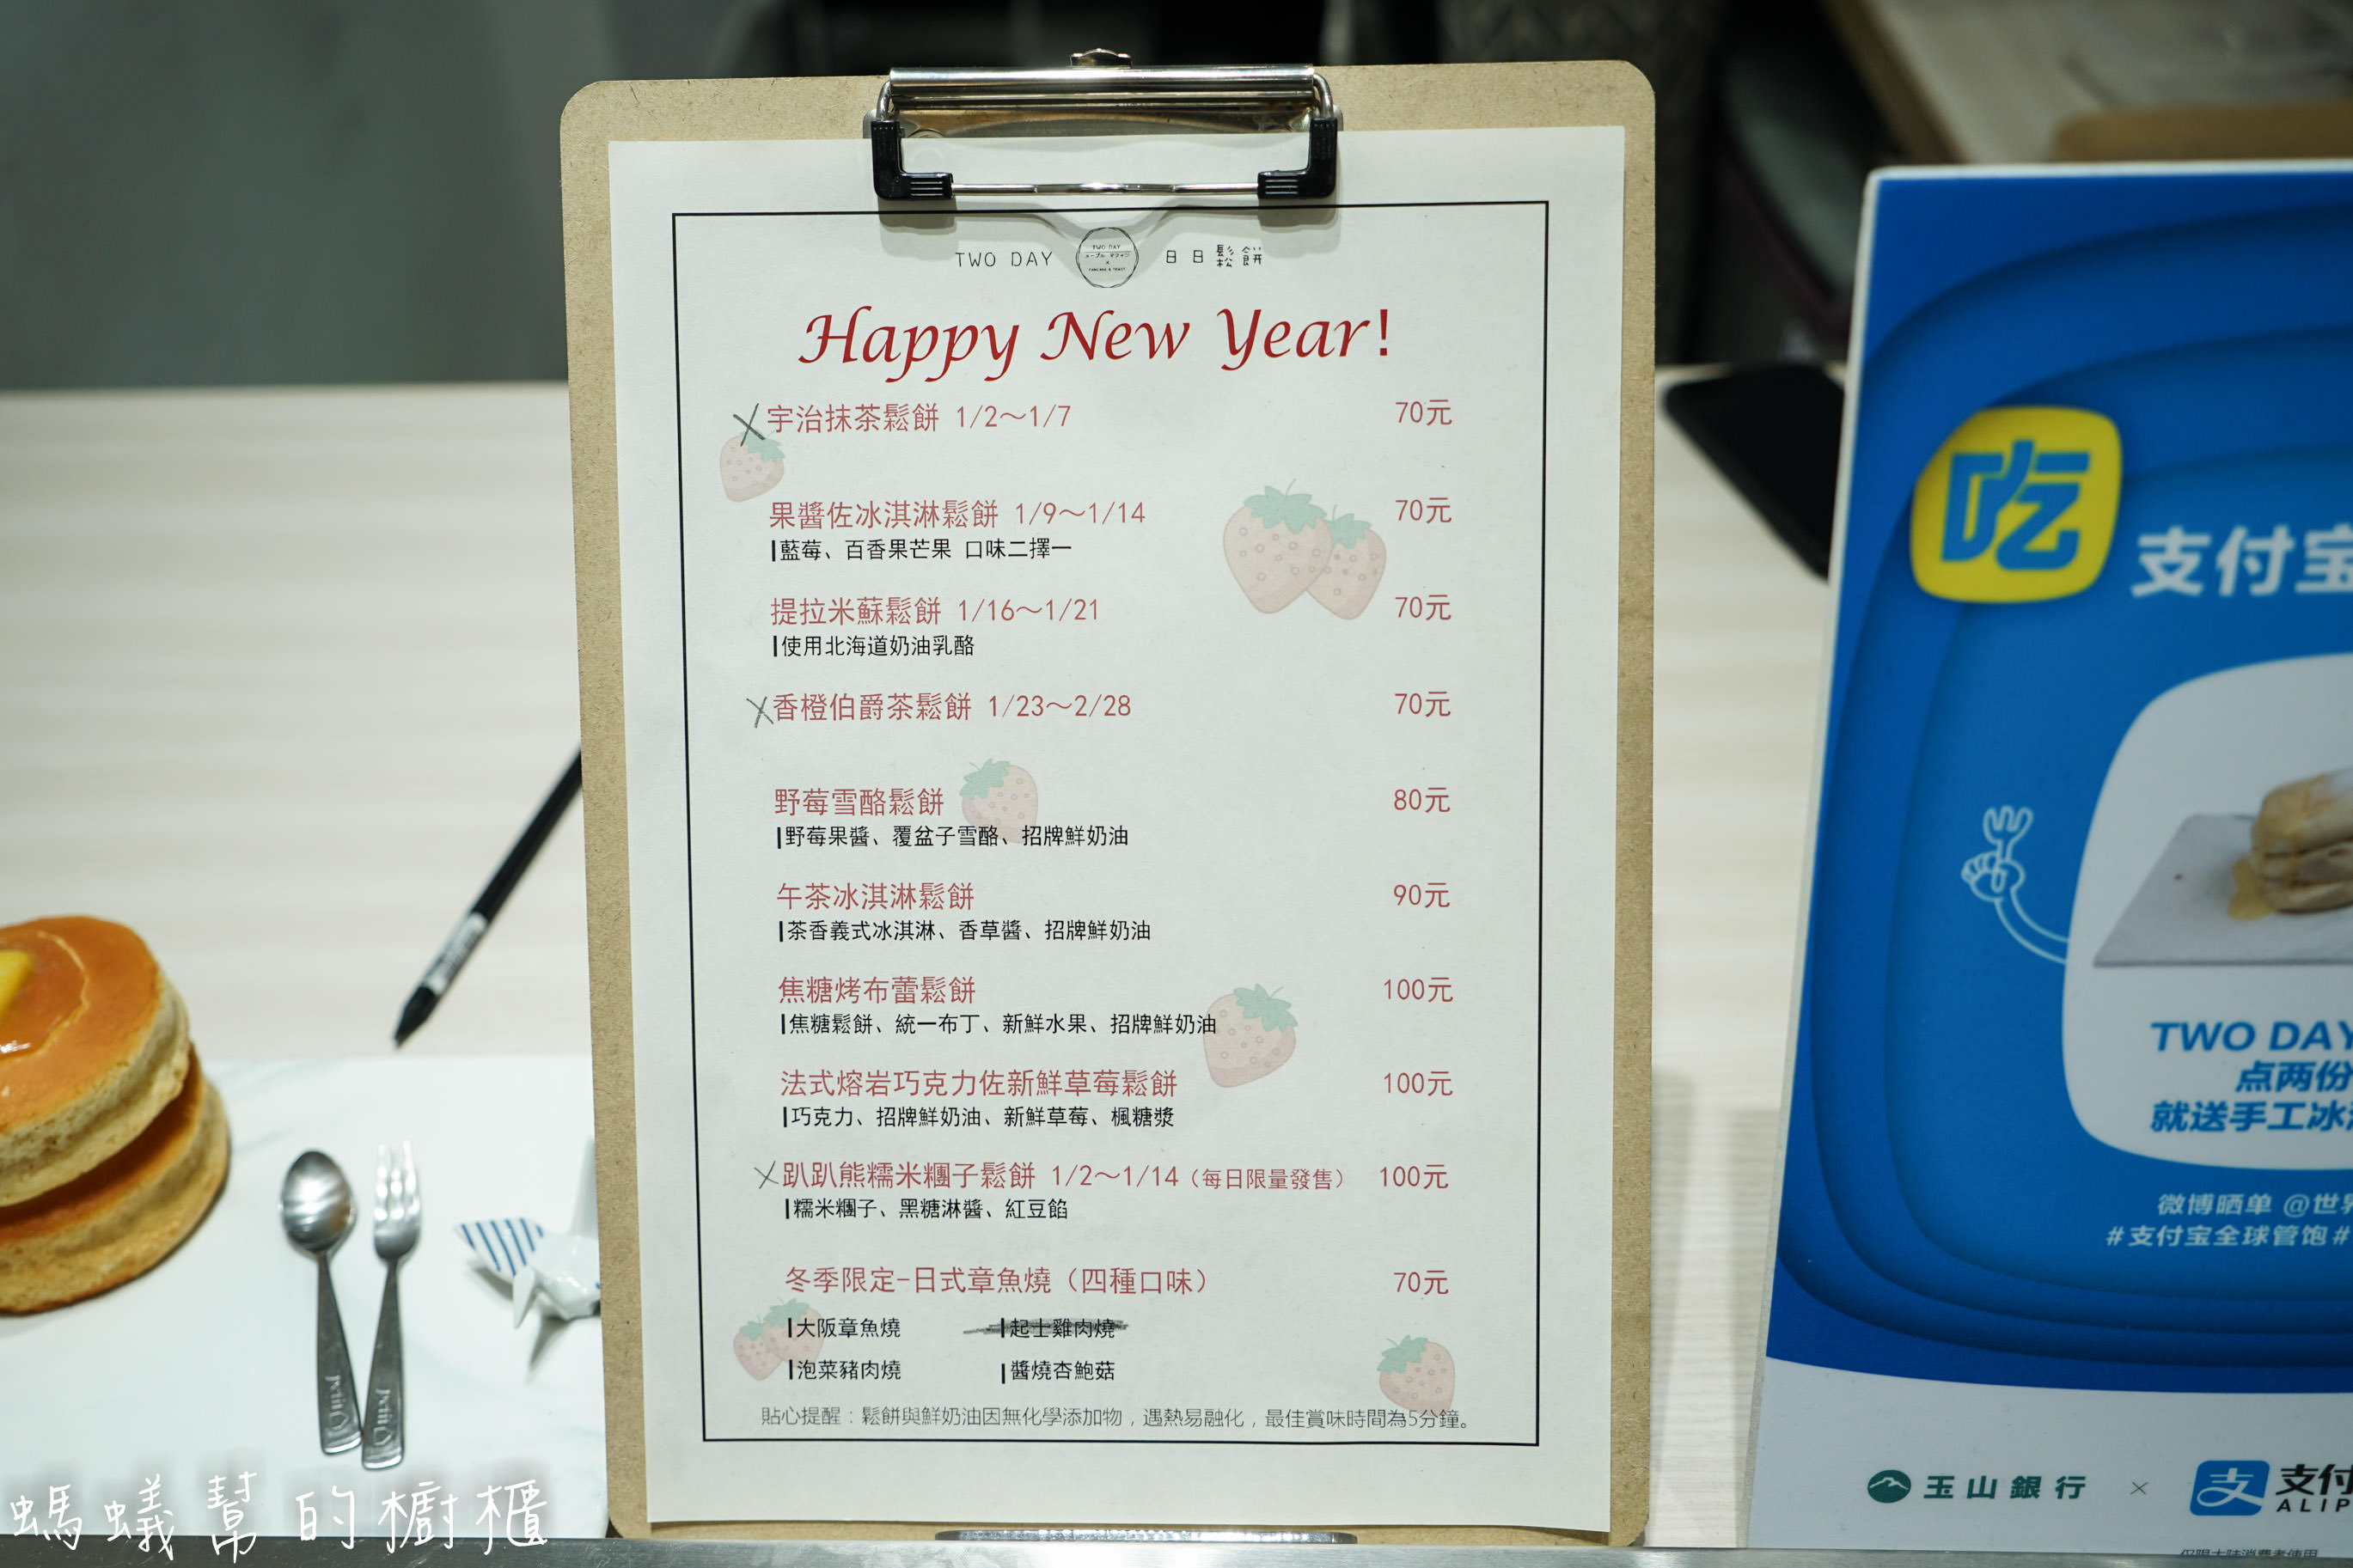 TWO DAY 日日鬆餅
Happy New Year!
宇治抹茶鬆餅 1/2～1/7 70元
果醬佐冰淇淋鬆餅 1/9～1/14 70元
藍莓、百香果芒果 口味二擇一
提拉米蘇鬆餅 1/16～1/21 70元
使用北海道奶油乳酪
香橙伯爵茶鬆餅 1/23～2/28 70元
野莓雪酪鬆餅 80元
野莓果醬、覆盆子雪酪、招牌鮮奶油
午茶冰淇淋鬆餅 90元
茶香義式冰淇淋、香草醬、招牌鮮奶油
焦糖烤布蕾鬆餅 100元
焦糖鬆餅、統一布丁、新鮮水果、招牌鮮奶油
法式熔岩巧克力佐新鮮草莓鬆餅 100元
巧克力、招牌鮮奶油、新鮮草莓、楓糖漿
趴趴熊糯米糰子鬆餅 1/2～1/14（每日限量發售） 100元
糯米糰子、黑糖淋醬、紅豆餡
冬季限定-日式章魚燒（四種口味） 70元
大阪章魚燒 起士雞肉燒
泡菜豬肉燒 醬燒杏鮑菇
貼心提醒：鬆餅與鮮奶油因無化學添加物，遇熱易融化，最佳賞味時間為5分鐘。
吃
支付宝
TWO DAY
点两份
就送手工冰
微博晒单 @世界
#支付宝全球管饱#
玉山銀行 × 支 支付
ALIP
螞蟻幫的櫥櫃